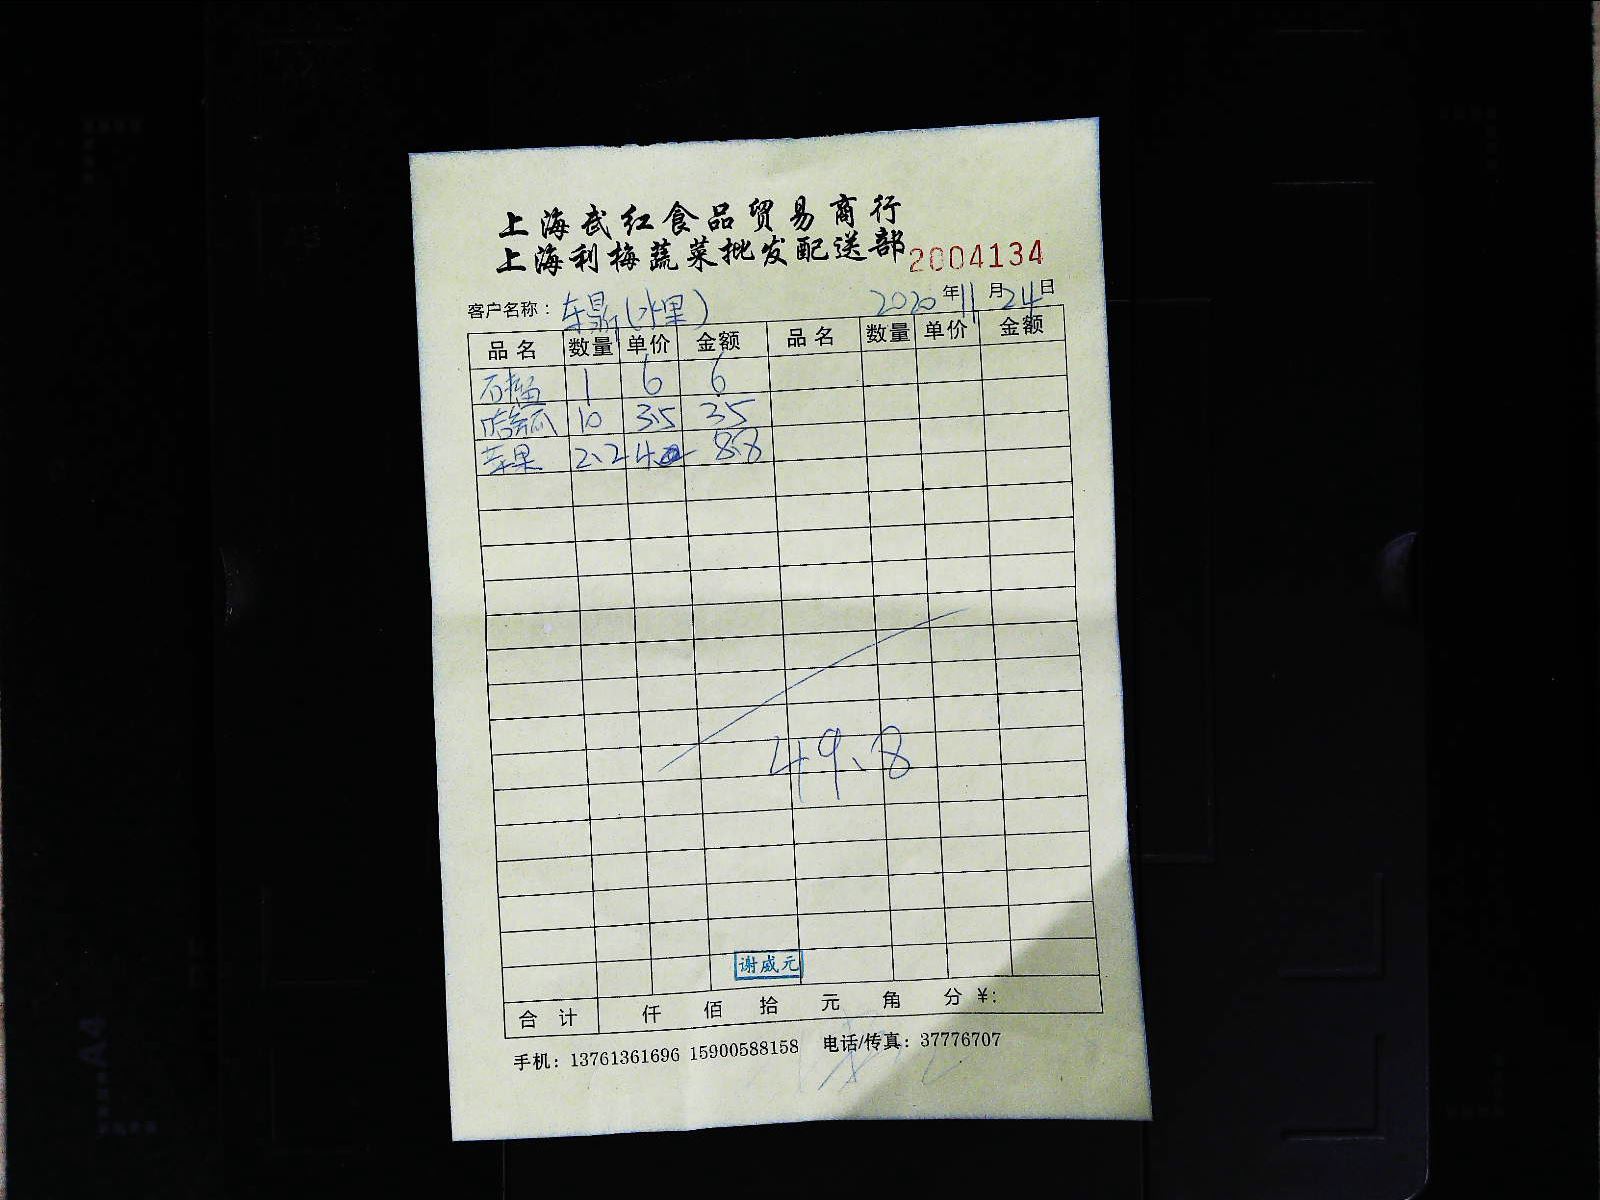 上海武红食品贸易商行
上海利梅蔬菜批发配送部 2004134
客户名称: 东鼎(水果) 2020年11月24日
品名 数量 单价 金额 品名 数量 单价 金额
石榴 1 6 6
哈密瓜 10 3.5 35
苹果 2.2 4 8.8
49.8
谢威元
合计 仟 佰 拾 元 角 分 ¥:
手机: 13761361696 15900588158 电话/传真: 37776707